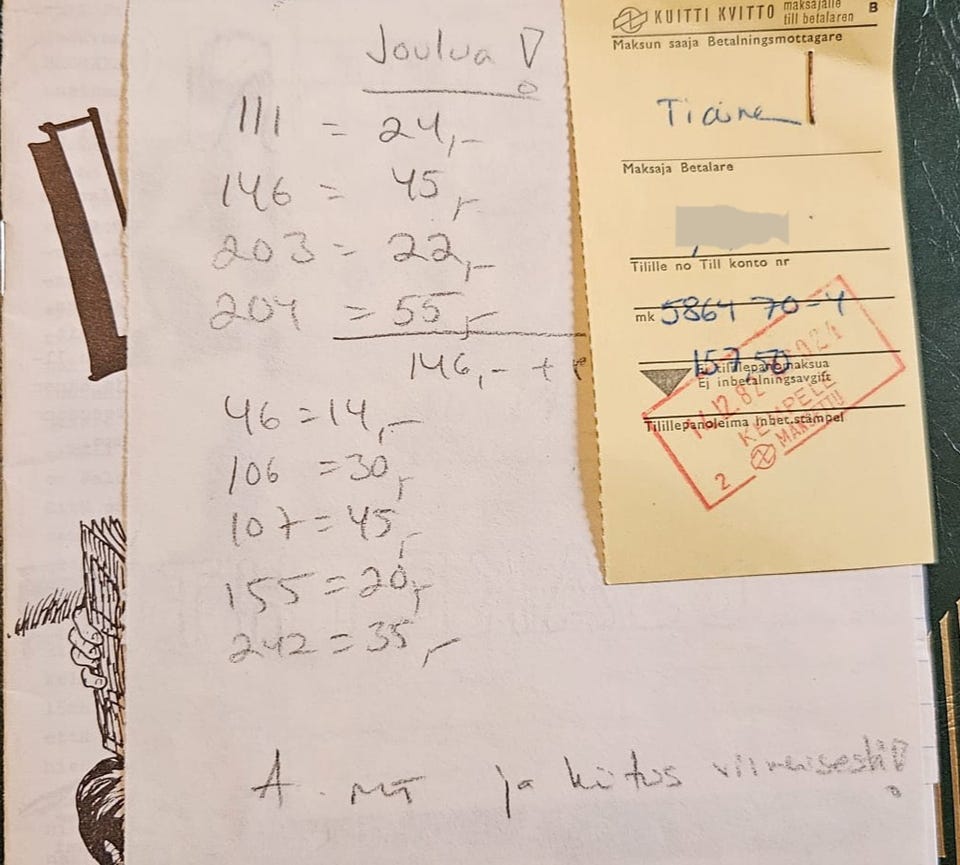 Joulua!
111 = 24,-
146 = 45,-
203 = 22,-
204 = 55,-
146,- +
46 = 14,-
106 = 30,-
107 = 45,-
155 = 20,-
242 = 35,-
A. ja kiitos viimeisestä!
KUITTI KVITTO maksajalle till betalaren B
Maksun saaja Betalningsmottagare
Maksaja Betalare
Tilille no Till konto nr
5864 70-4
mk
157,50
Ei tilillepanomaksua
Ej inbetalningsavgift
Tilillepanoleima Inbet.stämpel
KEMPELE
2 MAKSETTU